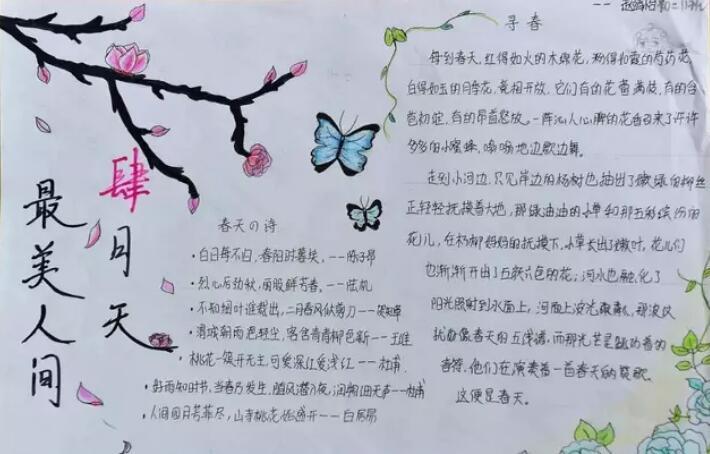 最美人间
肆月天
春天の诗
·白日每不归，春阳时暮矣，——陈子昂
·烈心厉劲秋，丽服鲜芳春，——陆机
·不知细叶谁裁出，二月春风似剪刀——贺知章
·渭城朝雨浥轻尘，客舍青青柳色新——王维
·桃花一簇开无主，可爱深红爱浅红——杜甫
·好雨知时节，当春乃发生，随风潜入夜，润物细无声——杜甫
·人间四月芳菲尽，山寺桃花始盛开——白居易
寻春
每到春天，红得如火的木绵花，粉得如霞的芍药花，
白得如玉的月季花，竞相开放，它们有的花蕾满枝，有的含
苞初绽，有的昂首怒放。一阵沁人心脾的花香引来了许许
多多的小蜜蜂，嗡嗡地边歌边舞。
走到小河边，只见岸边的杨树也抽出了嫩绿的柳丝
正轻轻抚摸着大地，那绿油油的小草和那五彩缤纷的
花儿，在杨柳妈妈的抚摸下，小草长出了嫩叶，花儿们
也渐渐开出了五颜六色的花；河水也融化了
阳光照射到水面上，河面上波光粼粼，那波纹
犹如像春天的五线谱，而那光芒是跳动着的
音符，他们在演奏着一首春天的赞歌。
这便是春天。